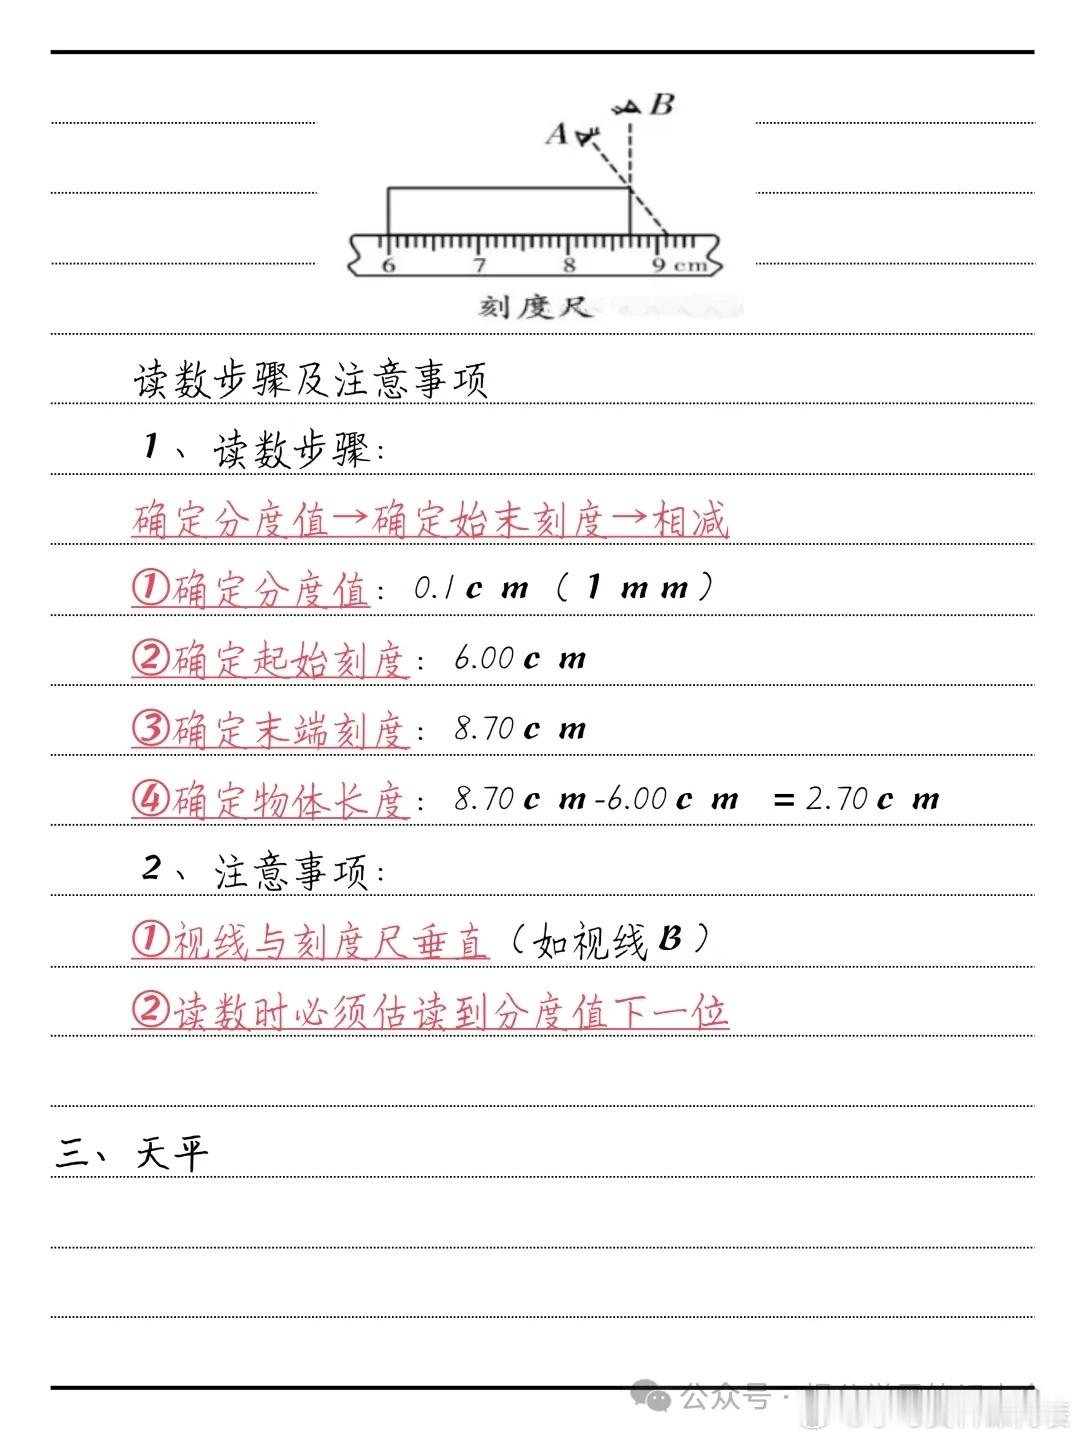 B
A
6 7 8 9 cm
刻度尺
读数步骤及注意事项
1、读数步骤:
确定分度值→确定始末刻度→相减
①确定分度值: 0.1cm(1mm)
②确定起始刻度: 6.00cm
③确定末端刻度: 8.70cm
④确定物体长度: 8.70cm-6.00cm =2.70cm
2、注意事项:
①视线与刻度尺垂直(如视线B)
②读数时必须估读到分度值下一位
三、天平
公众号·